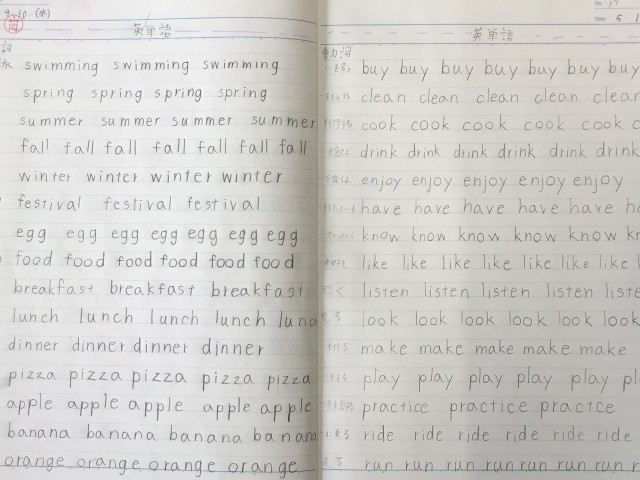 9.30 (水)
英単語
詞
swimming swimming swimming
spring spring spring spring
summer summer summer summer
fall fall fall fall fall fall fall
winter winter winter winter
festival festival festival
egg egg egg egg egg egg egg
food food food food food food
breakfast breakfast breakfast
lunch lunch lunch lunch lunch
dinner dinner dinner dinner
pizza pizza pizza pizza pizza
apple apple apple apple apple
banana banana banana banana
orange orange orange orange
英単語
動詞
buy buy buy buy buy buy buy
clean clean clean clean clean
cook cook cook cook cook c
drink drink drink drink drink drink
enjoy enjoy enjoy enjoy enjoy
have have have have have ha
know know know know know kn
like like like like like like l
listen listen listen listen liste
look look look look look look
make make make make make
play play play play play pl
practice practice practce
ride ride ride ride ride ride
run run run run run run run r